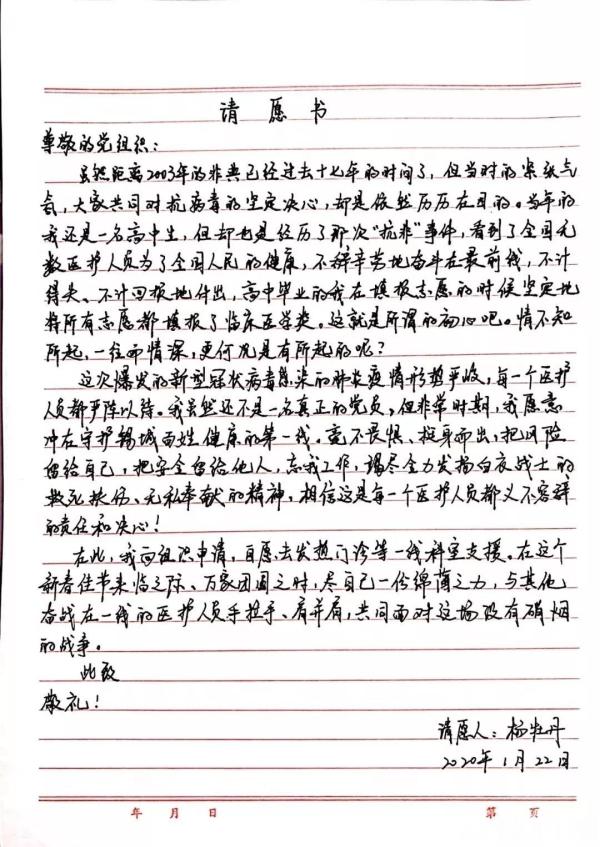 请愿书
尊敬的党组织：
虽然距离2003年的非典已经过去十七年的时间了，但当时的紧张气
氛，大家共同对抗病毒的坚定决心，却是依然历历在目的。当年的
我还是一名高中生，但却也是经历了那次“抗非”事件，看到了全国无
数医护人员为了全国人民的健康，不辞辛劳地奋斗在最前线，不计
得失、不计回报地付出，高中毕业的我在填报志愿的时候坚定地
将所有志愿都填报了临床医学类。这就是所谓的初心吧。情不知
所起，一往而情深，更何况是有所起的呢？
这次爆发的新型冠状病毒感染的肺炎疫情形势严峻，每一个医护
人员都严阵以待。我虽然还不是一名真正的党员，但非常时期，我愿意
冲在守护锡城百姓健康的第一线。毫不畏惧、挺身而出，把风险
留给自己，把安全留给他人，忘我工作，竭尽全力发扬白衣战士的
救死扶伤、无私奉献的精神，相信这是每一个医护人员都义不容辞
的责任和决心！
在此，我向组织申请，自愿去发热门诊等一线科室支援。在这个
新春佳节来临之际、万家团圆之时，尽自己一份绵薄之力，与其他
奋战在一线的医护人员手拉手、肩并肩，共同面对这场没有硝烟
的战争。
此致
敬礼！
请愿人：杨牡丹
2020年1月22日
年 月 日 第 页